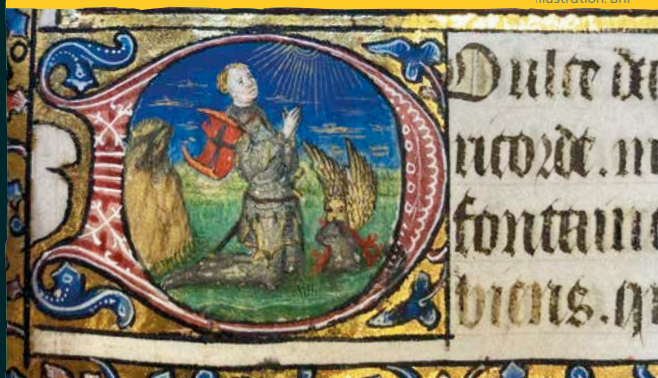 Illustration: BnF
Oulce da
ricorde. m
fontaine
biens. qu